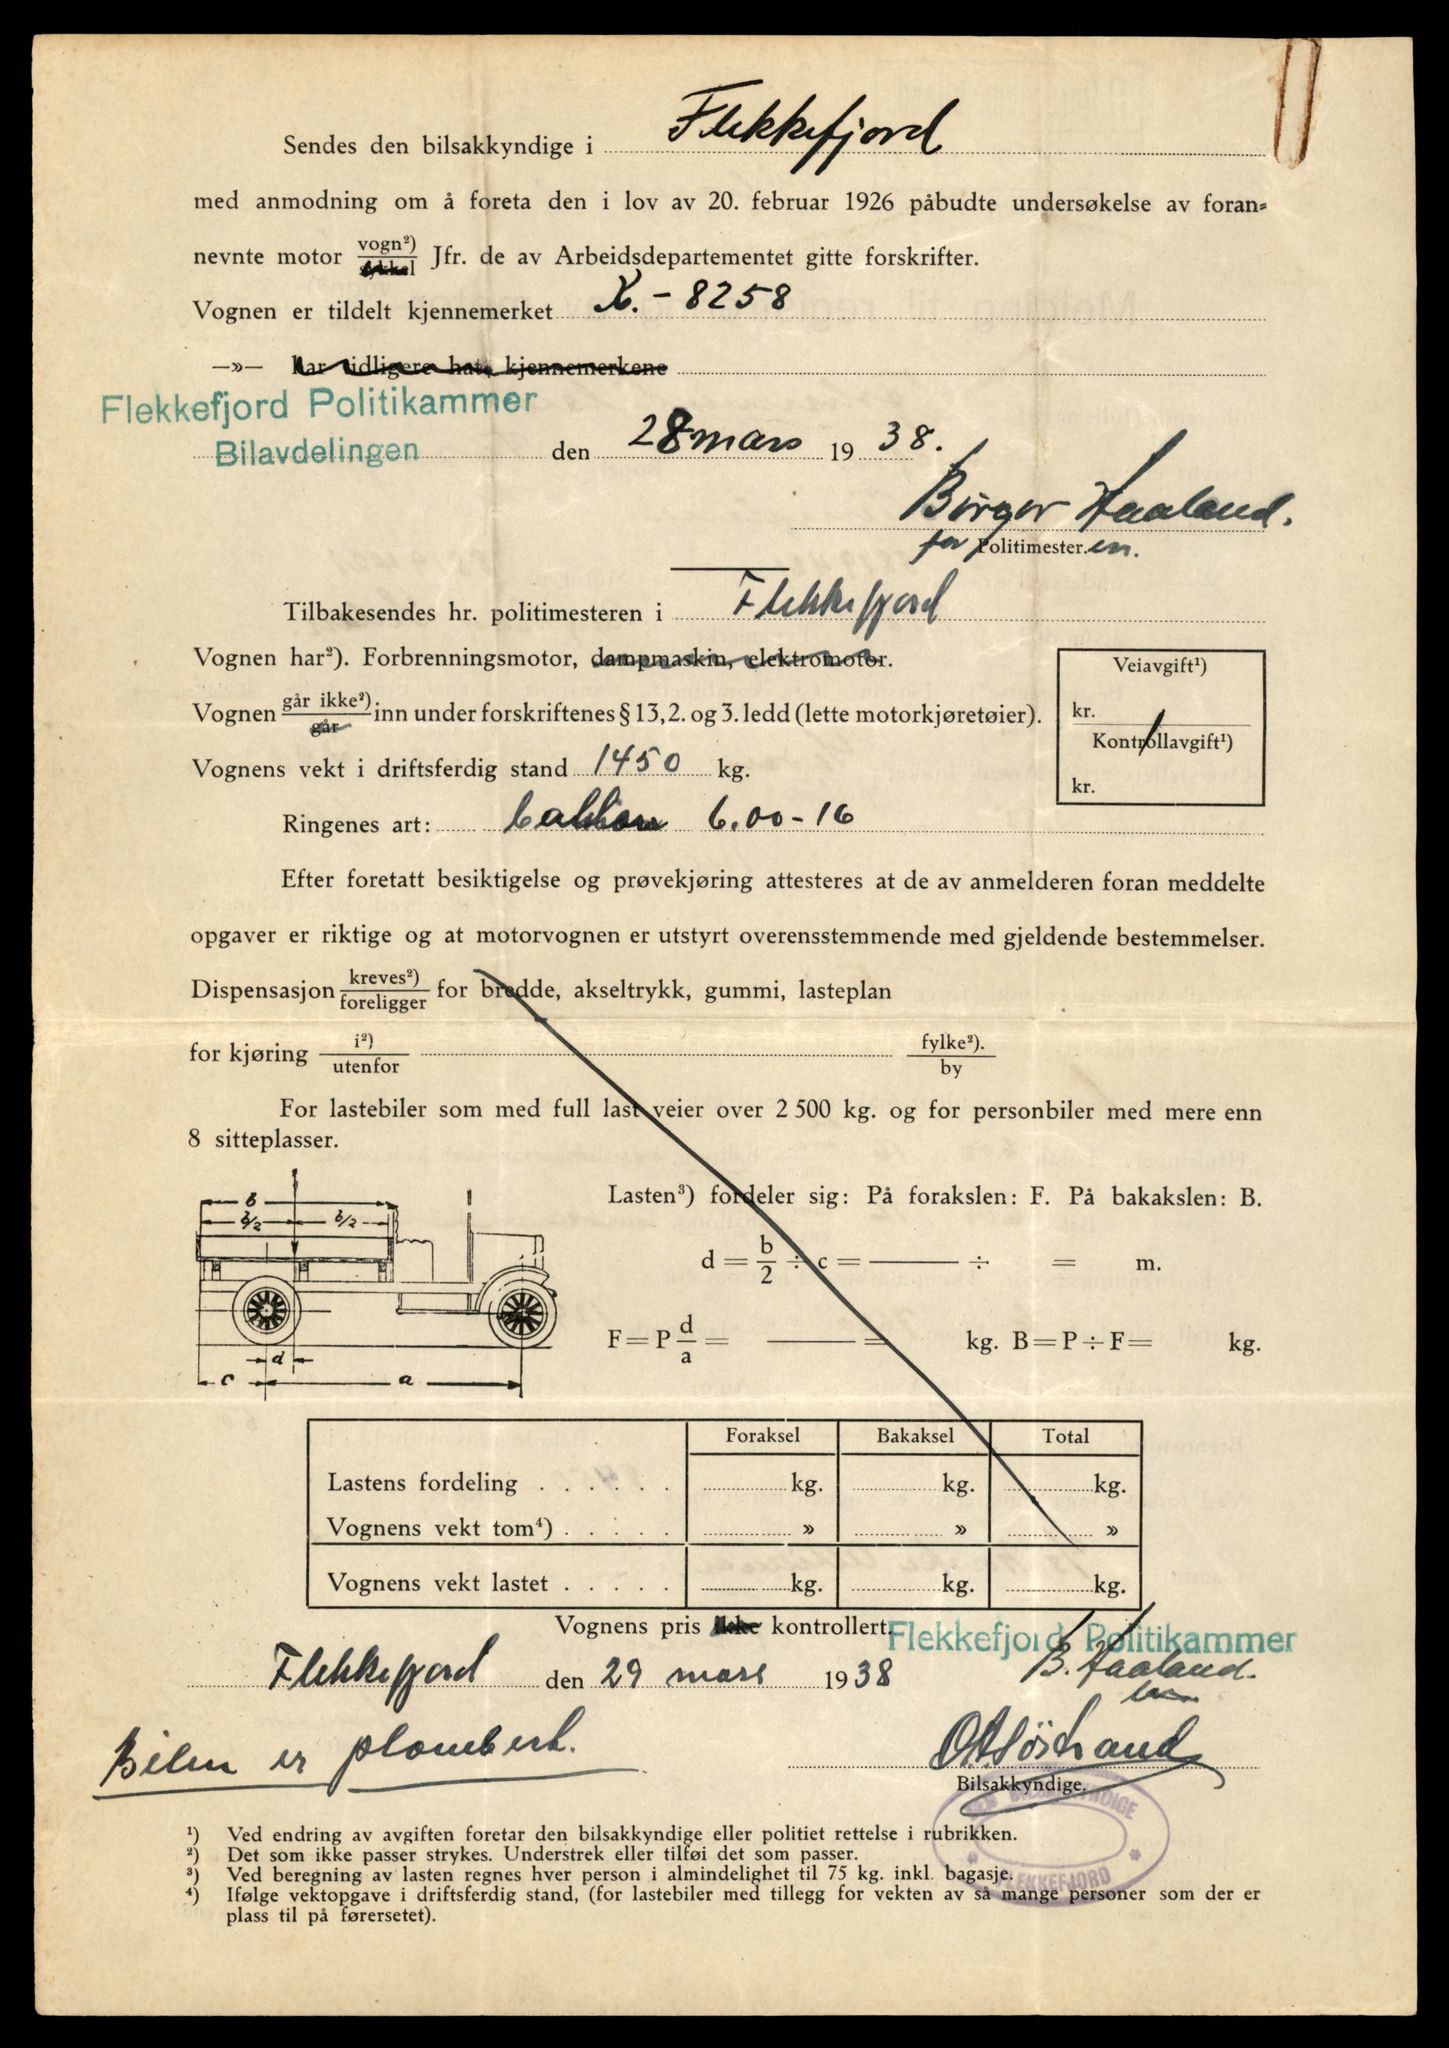 Sendes den bilsakkyndige i Flekkefjord
med anmodning om å foreta den i lov av 20. februar 1926 påbudte undersøkelse av foran=
nevnte motor vogn²) / sykkel Jfr. de av Arbeidsdepartementet gitte forskrifter.
Vognen er tildelt kjennemerket X. - 8258
—»— har tidligere hatt kjennemerkene
Flekkefjord Politikammer
Bilavdelingen den 28 mars 19 38.
Børger Haaland.
for Politimester.en.
Tilbakesendes hr. politimesteren i Flekkefjord
Vognen har²). Forbrenningsmotor, dampmaskin, elektromotor.
Veiavgift¹)
Vognen går ikke²) / går inn under forskriftenes § 13, 2. og 3. ledd (lette motorkjøretøier).
kr.
Kontrollavgift¹)
Vognens vekt i driftsferdig stand 1450 kg.
kr.
Ringenes art: ballon 6.00-16
Efter foretatt besiktigelse og prøvekjøring attesteres at de av anmelderen foran meddelte
opgaver er riktige og at motorvognen er utstyrt overensstemmende med gjeldende bestemmelser.
Dispensasjon kreves²) / foreligger for bredde, akseltrykk, gummi, lasteplan
for kjøring i²) / utenfor fylke²). / by
For lastebiler som med full last veier over 2 500 kg. og for personbiler med mere enn
8 sitteplasser.
b
b/2 b/2
d
c a
Lasten³) fordeler sig: På forakslen: F. På bakakslen: B.
d = b/2 ÷ c = ——— ÷ = m.
F = P d/a = ——— = kg. B = P ÷ F = kg.
Foraksel Bakaksel Total
Lastens fordeling . . . . . . kg. kg. kg.
Vognens vekt tom⁴) . . . . . » » »
Vognens vekt lastet . . . . . kg. kg. kg.
Vognens pris ikke kontrollert.
Flekkefjord Politikammer
B. Haaland.
Flekkefjord den 29 mars 1938
Bilen er plombert.
Bilsakkyndige.
DEN BILSAKKYNDIGE
* FLEKKEFJORD *
¹) Ved endring av avgiften foretar den bilsakkyndige eller politiet rettelse i rubrikken.
²) Det som ikke passer strykes. Understrek eller tilføi det som passer.
³) Ved beregning av lasten regnes hver person i almindelighet til 75 kg. inkl. bagasje.
⁴) Ifølge vektopgave i driftsferdig stand, (for lastebiler med tillegg for vekten av så mange personer som der er
plass til på førersetet).